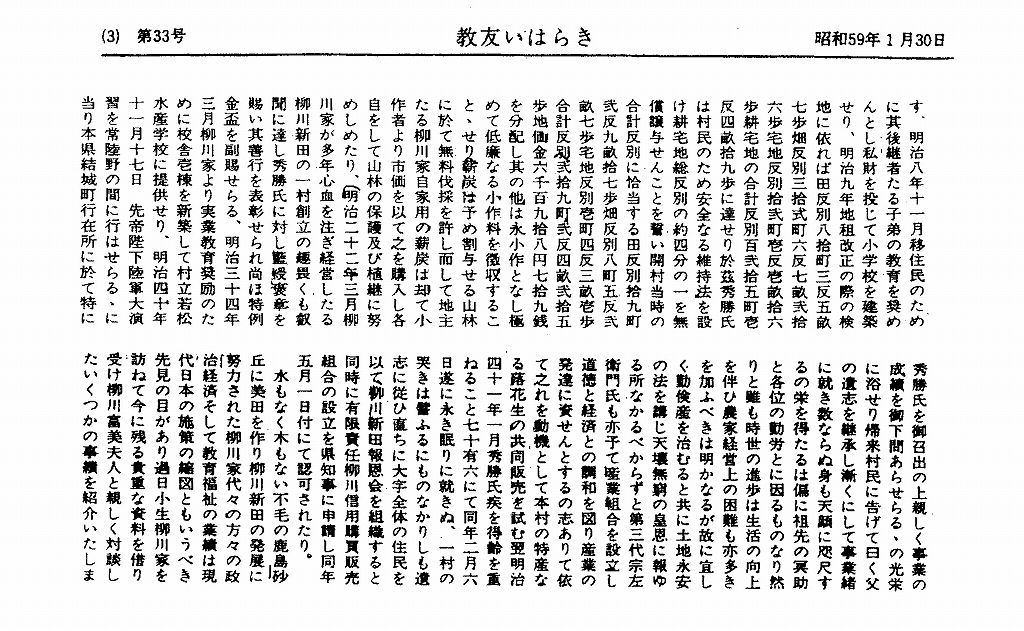 (3) 第33号
教友いはらき
昭和59年1月30日
す、明治八年十一月移住民のため
に其後継者たる子弟の教育を奨め
んとし私財を投じて小学校を建築
せり、明治九年地租改正の際の検
地に依れば田反別八拾町三反五畝
七歩畑反別三拾弐町六反七畝弐拾
六歩宅地反別拾弐町壱反壱畝拾六
歩耕宅地の合計反別百弐拾五町壱
反四畝拾九歩に達せり於茲秀勝氏
は村民のため安全なる維持法を設
け耕宅地総反別の約四分の一を無
償譲与せんことを誓い開村当時の
合計反別に恰当する田反別拾九町
九反九畝拾七歩畑反別八町五反弐
畝七歩宅地反別壱町四反三畝壱歩
合計反別弐拾九町弐反四畝弐拾五
歩地価金六千百九拾八円七拾九銭
を分配し其の他は永小作となし極
めて低廉なる小作料を徴収するこ
とゝせり薪炭は予め割与せる山林
に於て無料伐採を許し而して地主
たる柳川家自家用の薪炭は却て小
作者より市価を以て之を購入し各
自をして山林の保護及び植継に努
めしめたり、明治二十二年三月柳
川家が多年心血を注ぎ経営したる
柳川新田の一村創立の趣畏くも叡
聞に達し秀勝氏に対し藍綬褒章を
賜い其善行を表彰せられ尚ほ特例
金盃を副賜せらる、明治三十四年
三月柳川家より実業教育奨励のた
めに校舎壱棟を新築して村立若松
水産学校に提供せり、明治四十年
十一月十七日 先帝陛下陸軍大演
習を常陸野の間に行はせらるゝに
当り本県結城町行在所に於て特に
秀勝氏を御召出の上親しく事業の
成績を御下問あらせらるゝの光栄
に浴せり帰来村民に告げて曰く父
の遺志を継承し漸くにして事業緒
に就き数ならぬ身も天顔に咫尺す
るの栄を得たるは偏に祖先の冥助
と各位の勤労とに因るものなり然
りと雖も時世の進歩は生活の向上
を伴ひ農家経営上の困難も亦多き
を加ふべきは明かなるが故に宜し
く勤倹産を治むると共に土地永安
の法を講じ天壌無窮の皇恩に報ゆ
る所なかるべからずと第三代宗左
衛門氏も亦予て産業組合を設立し
道徳と経済との調和を図り産業の
発達に資せんとするの志ありて依
て之れを動機として本村の特産な
る落花生の共同販売を試む翌明治
四十一年一月秀勝氏疾を得齢を重
ねること七十有六にて同年二月六
日遂に永き眠りに就きぬ、一村の
哭きは譬ふるにものなかりしも遺
志に従ひ直ちに大字全体の住民を
以て柳川新田報恩会を組織すると
同時に有限責任柳川信用購買販売
組合の設立を県知事に申請し同年
五月一日付にて認可されたり。
水もなく木もない不毛の鹿島砂
丘に美田を作り柳川新田の発展に
努力された柳川家代々の方々の政
治経済そして教育福祉の業績は現
代日本の施策の縮図ともいうべき
先見の目があり過日小生柳川家を
訪ねて今に残る貴重な資料を借り
受け柳川富美夫人と親しく対談し
たいくつかの事績を紹介いたしま